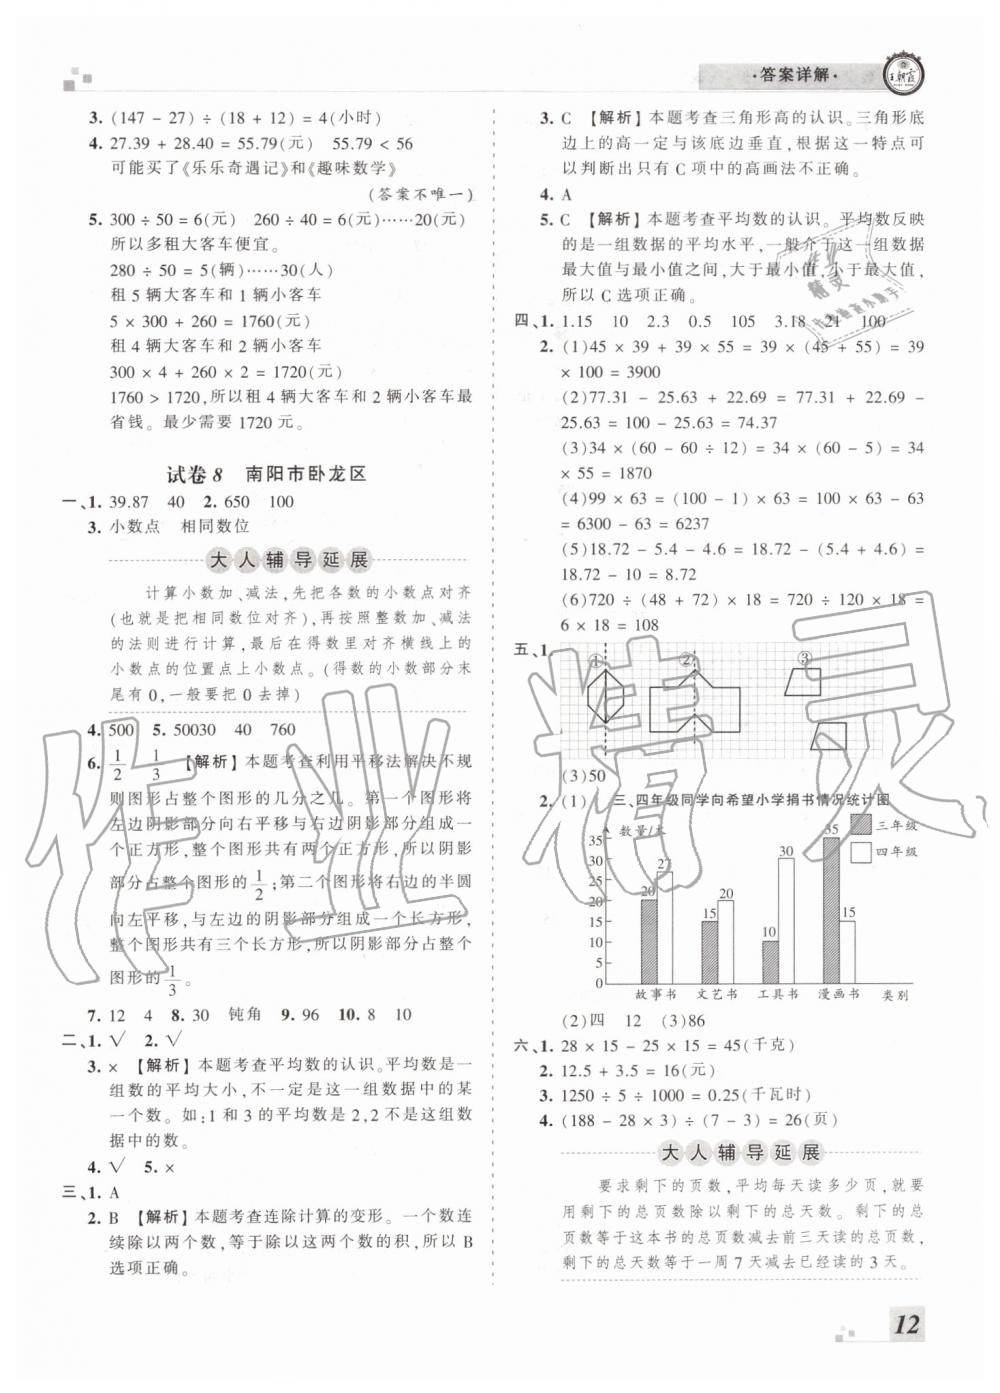 ·答案详解·
王朝霞
3. (147 - 27) ÷ (18 + 12) = 4(小时)
4. 27.39 + 28.40 = 55.79(元)　55.79 < 56
可能买了《乐乐奇遇记》和《趣味数学》
(答案不唯一)
5. 300 ÷ 50 = 6(元)　260 ÷ 40 = 6(元)……20(元)
所以多租大客车便宜。
280 ÷ 50 = 5(辆)……30(人)
租 5 辆大客车和 1 辆小客车
5 × 300 + 260 = 1760(元)
租 4 辆大客车和 2 辆小客车
300 × 4 + 260 × 2 = 1720(元)
1760 > 1720,所以租 4 辆大客车和 2 辆小客车最
省钱。最少需要 1720 元。
试卷 8　南阳市卧龙区
一、1. 39.87　40　2. 650　100
3. 小数点　相同数位
大人辅导延展
计算小数加、减法,先把各数的小数点对齐
(也就是把相同数位对齐),再按照整数加、减法
的法则进行计算,最后在得数里对齐横线上的
小数点的位置点上小数点。(得数的小数部分末
尾有 0,一般要把 0 去掉)
4. 500　5. 50030　40　760
6. 1/2　1/3　【解析】本题考查利用平移法解决不规
则图形占整个图形的几分之几。第一个图形将
左边阴影部分向右平移与右边阴影部分组成一
个正方形,整个图形共有两个正方形,所以阴影
部分占整个图形的 1/2;第二个图形将右边的半圆
向左平移,与左边的阴影部分组成一个长方形,
整个图形共有三个长方形,所以阴影部分占整个
图形的 1/3。
7. 12　4　8. 30　钝角　9. 96　10. 8　10
二、1. √　2. √
3. ×　【解析】本题考查平均数的认识。平均数是一
组数的平均大小,不一定是这一组数据中的某
一个数。如:1 和 3 的平均数是 2,2 不是这组数
据中的数。
4. √　5. ×
三、1. A
2. B　【解析】本题考查连除计算的变形。一个数连
续除以两个数,等于除以这两个数的积,所以 B
选项正确。
3. C　【解析】本题考查三角形高的认识。三角形底
边上的高一定与该底边垂直,根据这一特点可
以判断出只有 C 项中的高画法不正确。
4. A
5. C　【解析】本题考查平均数的认识。平均数反映
的是一组数据的平均水平,一般介于这一组数据
最大值与最小值之间,大于最小值,小于最大值,
所以 C 选项正确。
四、1. 1.15　10　2.3　0.5　105　3.18　21　100
2. (1)45 × 39 + 39 × 55 = 39 × (45 + 55) = 39
× 100 = 3900
(2)77.31 - 25.63 + 22.69 = 77.31 + 22.69 -
25.63 = 100 - 25.63 = 74.37
(3)34 × (60 - 60 ÷ 12) = 34 × (60 - 5) = 34
× 55 = 1870
(4)99 × 63 = (100 - 1) × 63 = 100 × 63 - 63
= 6300 - 63 = 6237
(5)18.72 - 5.4 - 4.6 = 18.72 - (5.4 + 4.6) =
18.72 - 10 = 8.72
(6)720 ÷ (48 + 72) × 18 = 720 ÷ 120 × 18 =
6 × 18 = 108
五、1.
①　②　③
(3)50
2. (1)　三、四年级同学向希望小学捐书情况统计图
数量/本
三年级
四年级
35
30
25
20
15
10
5
0
20　27　15　20　10　30　35　15
故事书　文艺书　工具书　漫画书　类别
(2)四　12　(3)86
六、1. 28 × 15 - 25 × 15 = 45(千克)
2. 12.5 + 3.5 = 16(元)
3. 1250 ÷ 5 ÷ 1000 = 0.25(千瓦时)
4. (188 - 28 × 3) ÷ (7 - 3) = 26(页)
大人辅导延展
要求剩下的页数,平均每天读多少页,就要
用剩下的总页数除以剩下的总天数。剩下的总
页数等于这本书的总页数减去前三天读的总页数,
剩下的总天数等于一周 7 天减去已经读的 3 天。
12
作业精灵
作业
精灵